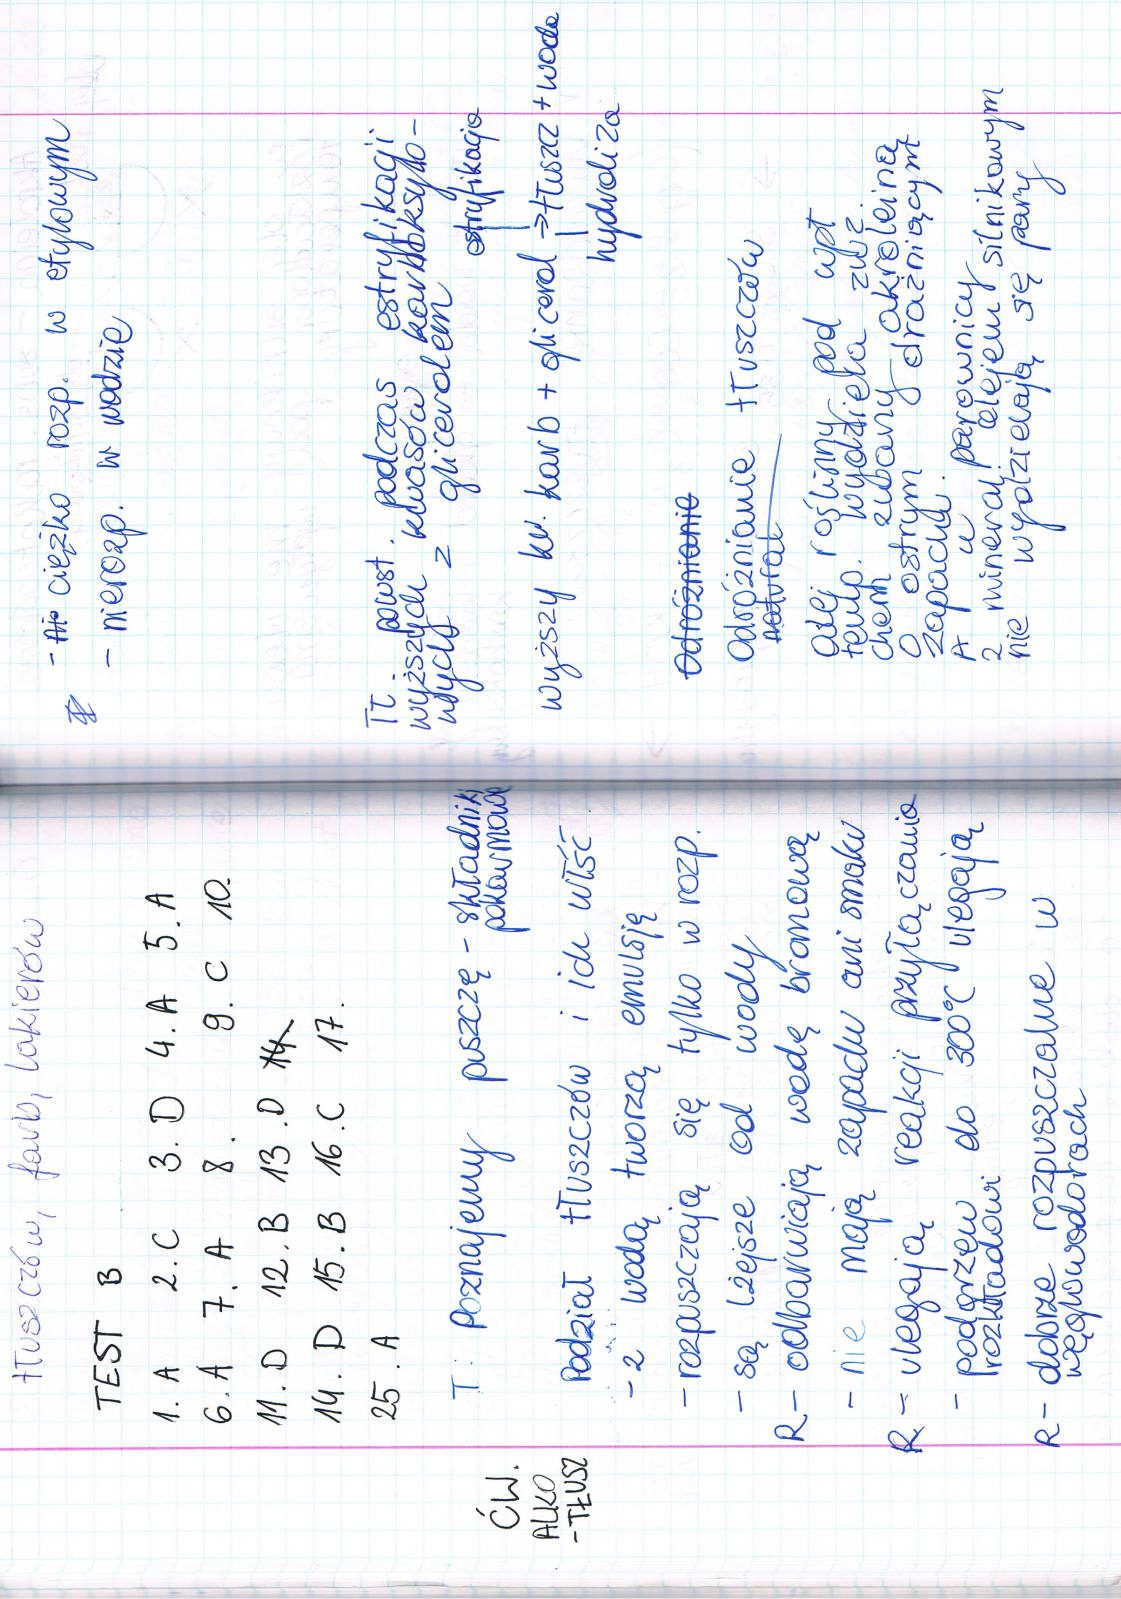 tłuszczów, farb, lakierów
TEST B
1. A 2. C 3. D 4. A 5. A
6. A 7. A 8. 9. C 10.
11. D 12. B 13. D 14.
14. D 15. B 16. C 17.
25. A
ĆW.
ALKO
-TŁUSZ
T: Poznajemy puszczę - składniki
pokarmowe
Podział tłuszczów i ich włść
- z wodą tworzą emulsję
- rozpuszczają się tylko w rozp.
- są lżejsze od wody
R - odbarwiają wodę bromową
- nie mają zapachu ani smaku
R - ulegają reakcji przyłączania
- podgrzew do 300°C ulegają
rozkładowi
R - dobrze rozpuszczalne w
węglowodorach
- ciężko rozp. w etylowym
- nierozp. w wodzie
Tł. powst. podczas estryfikacji
wyższych kwasów karboksylo-
wych z glicerolem
estryfikacja
wyższy kw. karb + glicerol ⇒ tłuszcz + woda
hydroliza
Odróżnianie
Odróżnianie tłuszczów
natural
olej roślinny pod wpł
temp. wydziela zwz.
chem zwany akroleiną
O ostrym drażniącym
zapachu.
A w parownicy
z mineral. olejem silnikowym
nie wydzielają się pary